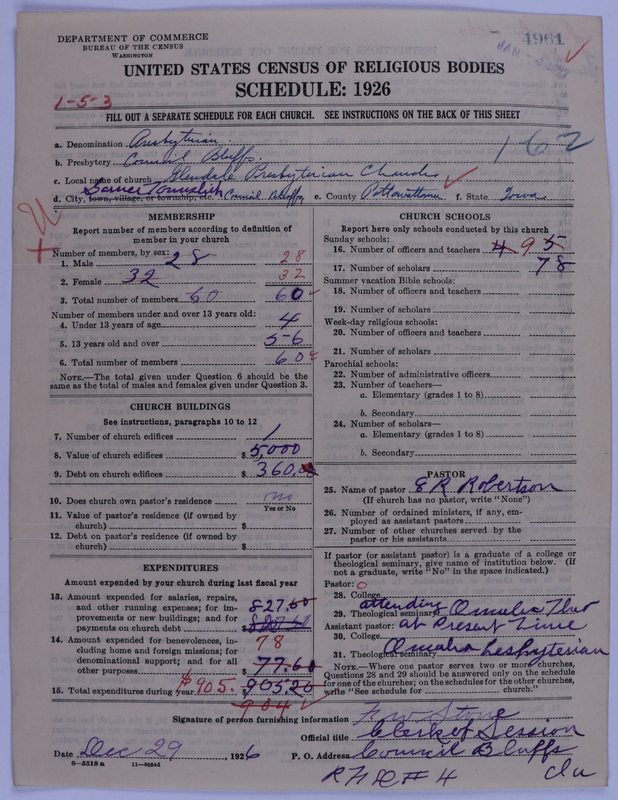 DEPARTMENT OF COMMERCE
BUREAU OF THE CENSUS
WASHINGTON
4961
JAN
UNITED STATES CENSUS OF RELIGIOUS BODIES
SCHEDULE: 1926
1-5-3
FILL OUT A SEPARATE SCHEDULE FOR EACH CHURCH. SEE INSTRUCTIONS ON THE BACK OF THIS SHEET
162
a. Denomination Presbyterian
b. Presbytery Council Bluffs
c. Local name of church Glendale Presbyterian Church
d. City, town, village, or township, etc. Township Council Bluffs e. County Pottawattamie f. State Iowa
MEMBERSHIP
Report number of members according to definition of
member in your church
Number of members, by sex:
1. Male 28 28
2. Female 32 32
3. Total number of members 60 60
Number of members under and over 13 years old:
4. Under 13 years of age 4
5. 13 years old and over 56
6. Total number of members 60
NOTE.—The total given under Question 6 should be the
same as the total of males and females given under Question 3.
CHURCH BUILDINGS
See instructions, paragraphs 10 to 12
7. Number of church edifices 1
8. Value of church edifices $ 5,000
9. Debt on church edifices $ 360.00
10. Does church own pastor's residence no
Yes or No
11. Value of pastor's residence (if owned by
church) $
12. Debt on pastor's residence (if owned by
church) $
EXPENDITURES
Amount expended by your church during last fiscal year
13. Amount expended for salaries, repairs,
and other running expenses; for im-
provements or new buildings; and for
payments on church debt $ 827.60
14. Amount expended for benevolences, in-
cluding home and foreign missions; for
denominational support; and for all
other purposes $ 78 77.60
15. Total expenditures during year $905. $
904
CHURCH SCHOOLS
Report here only schools conducted by this church
Sunday schools:
16. Number of officers and teachers 9
17. Number of scholars 78
Summer vacation Bible schools:
18. Number of officers and teachers
19. Number of scholars
Week-day religious schools:
20. Number of officers and teachers
21. Number of scholars
Parochial schools:
22. Number of administrative officers
23. Number of teachers—
a. Elementary (grades 1 to 8)
b. Secondary
24. Number of scholars—
a. Elementary (grades 1 to 8)
b. Secondary
PASTOR
25. Name of pastor E R Robertson
(If church has no pastor, write "None")
26. Number of ordained ministers, if any, em-
ployed as assistant pastors
27. Number of other churches served by the
pastor or his assistants
If pastor (or assistant pastor) is a graduate of a college or
theological seminary, give name of institution below. (If
not a graduate, write "No" in the space indicated.)
Pastor: 0
28. College attending
29. Theological seminary Omaha Theo
Assistant pastor: at Present Time
30. College
31. Theological seminary Omaha Presbyterian
NOTE.—Where one pastor serves two or more churches,
Questions 28 and 29 should be answered only on the schedule
for one of the churches; on the schedules for the other churches,
write "See schedule for church."
Signature of person furnishing information
Official title Clerk of Session
Date Dec 29 , 1926 P. O. Address Council Bluffs
8-5518 a
RFD # 4 Ia